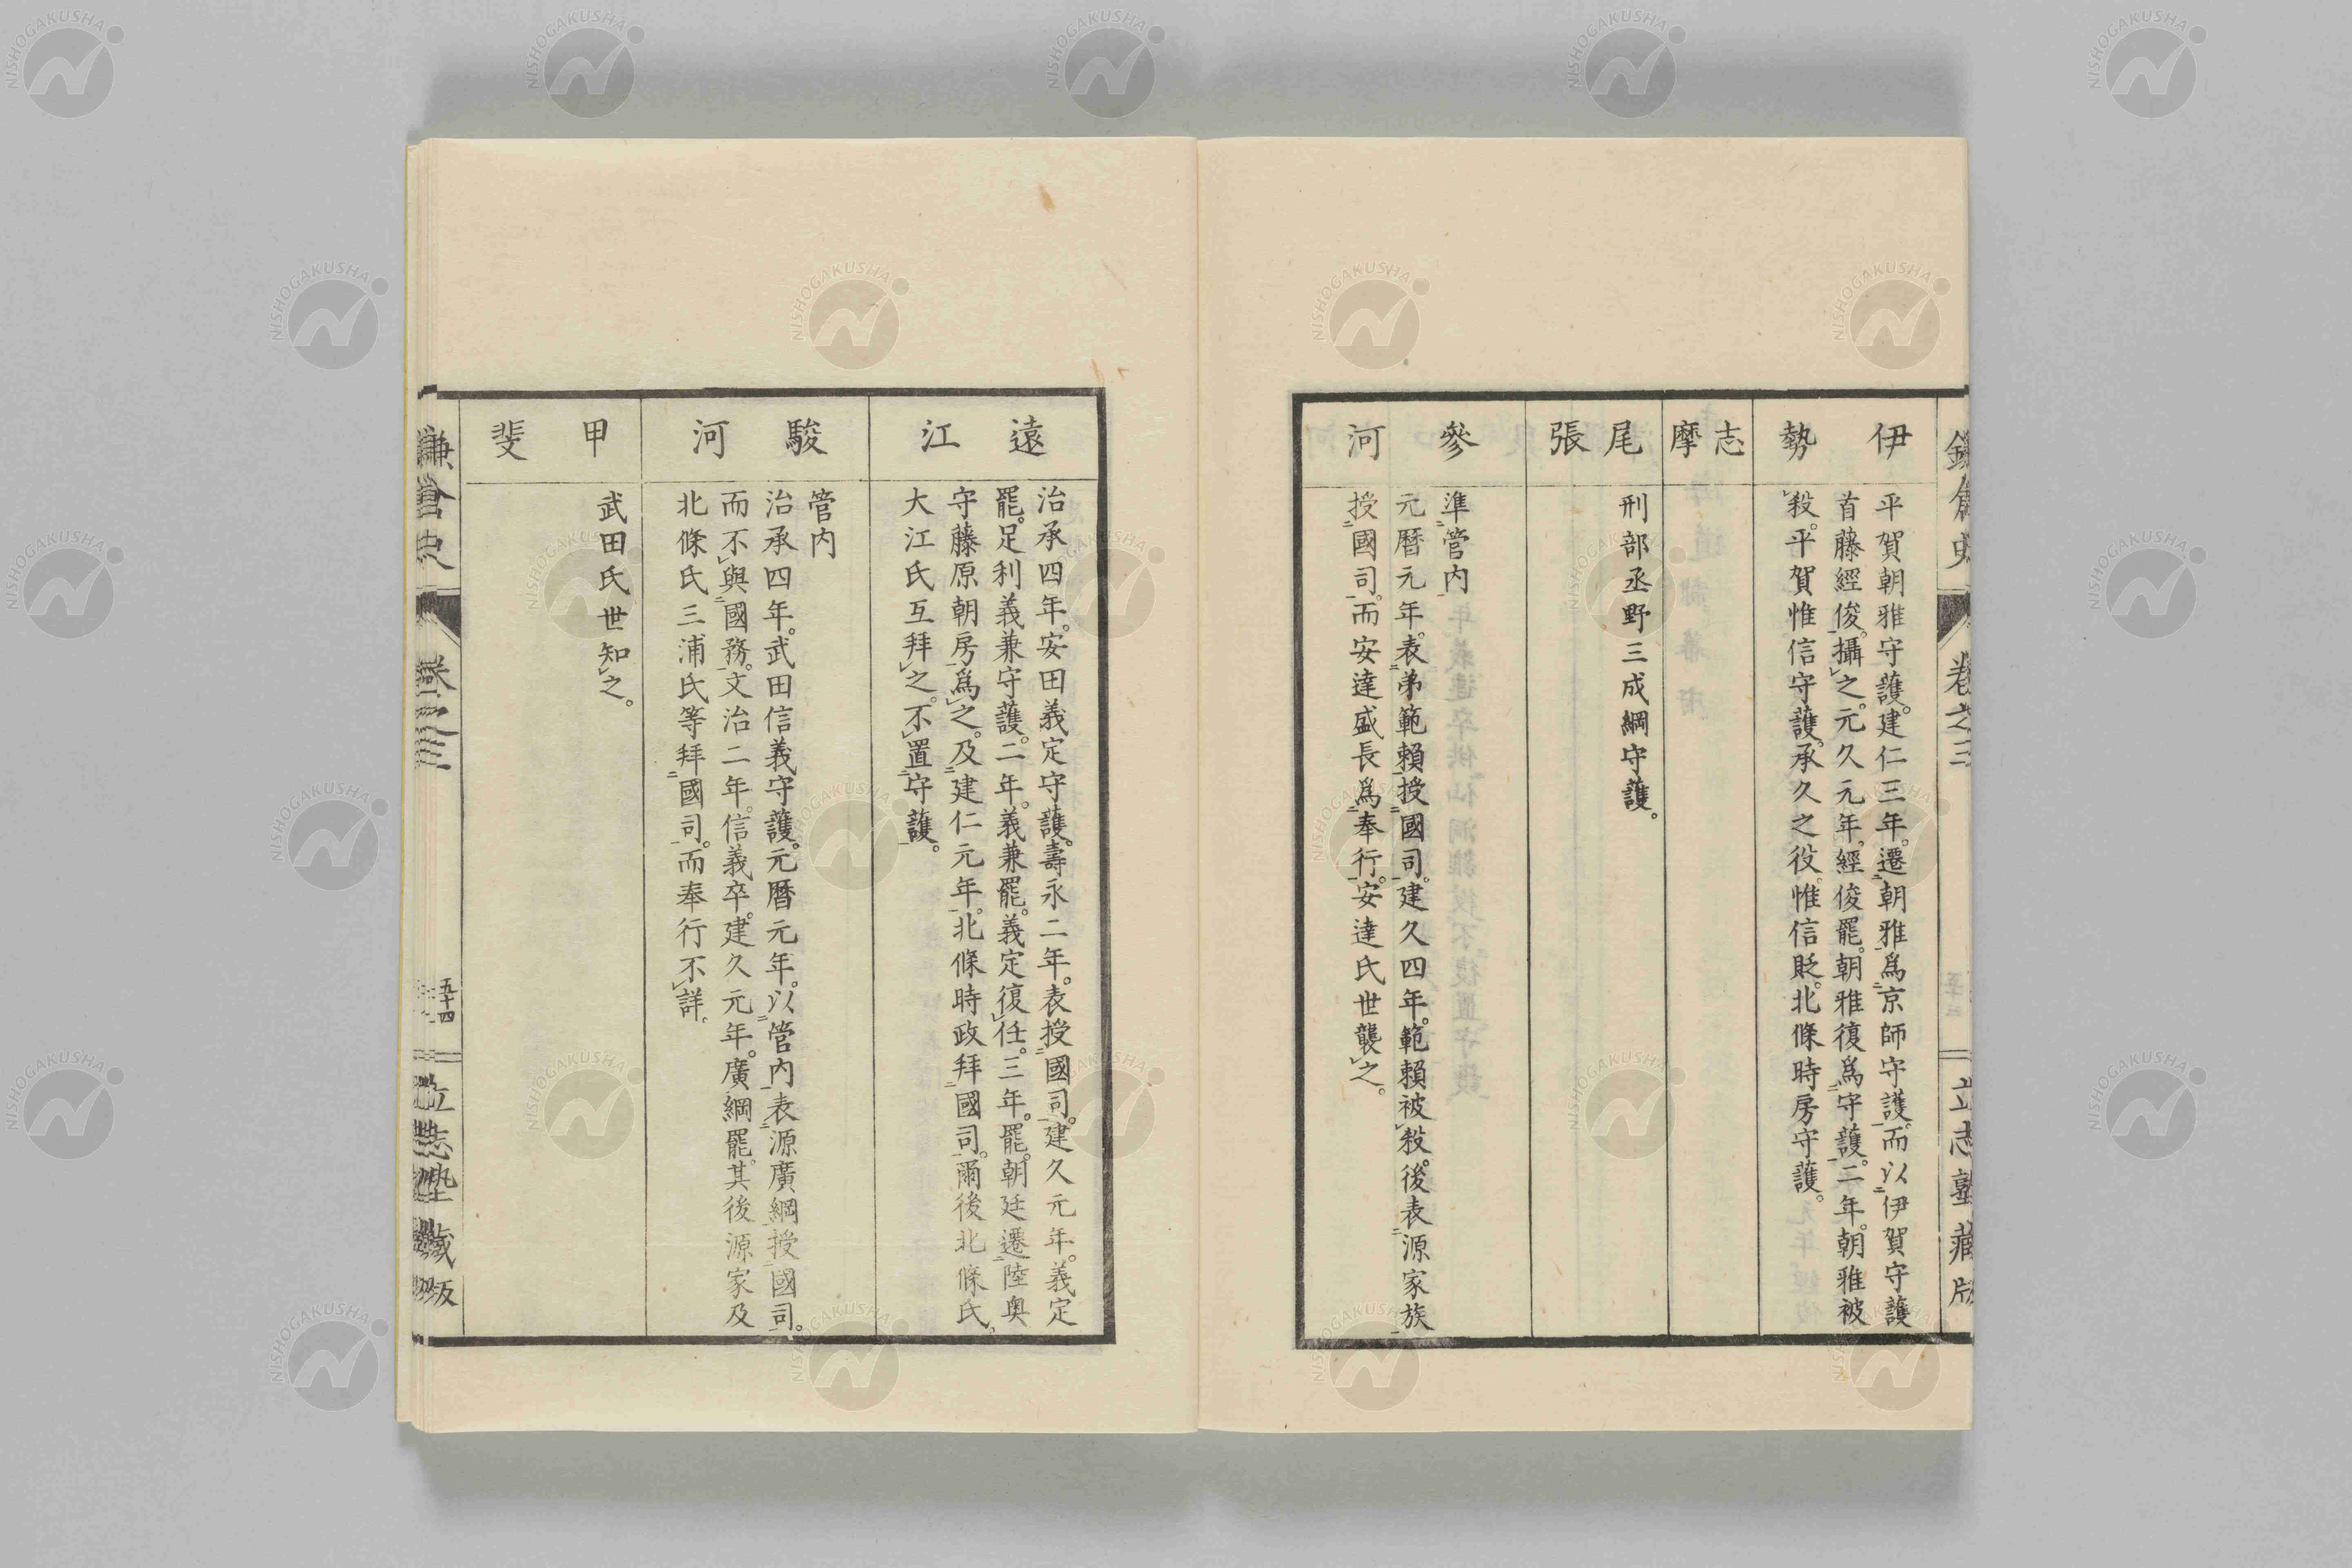 伊勢
平賀朝雅守護。建仁三年。遷朝雅爲京師守護。而以伊賀守護
首藤經俊。攝之。元久元年。經俊罷。朝雅復爲守護。二年。朝雅被
殺。平賀惟信守護。承久之役。惟信貶。北條時房守護。
志摩
尾張
刑部丞野三成綱守護。
參河
準管內
元曆元年。表弟範賴授國司。建久四年。範賴被殺。後表源家族
授國司。而安達盛長爲奉行。安達氏世襲之。
遠江
治承四年。安田義定守護。壽永二年。表授國司。建久元年。義定
罷。足利義兼守護。二年。義兼罷。義定復任。三年。罷。朝廷遷陸奧
守藤原朝房爲之。及建仁元年。北條時政拜國司。爾後北條氏。
大江氏互拜之。不置守護。
駿河
管内
治承四年。武田信義守護。元曆元年。以管內表源廣綱授國司。
而不與國務。文治二年。信義卒。建久元年。廣綱罷。其後源家及
北條氏三浦氏等拜國司。而奉行不詳。
甲斐
武田氏世知之。
鎌倉史
卷之三
五十四
立志塾藏版
NISHOGAKUSHA